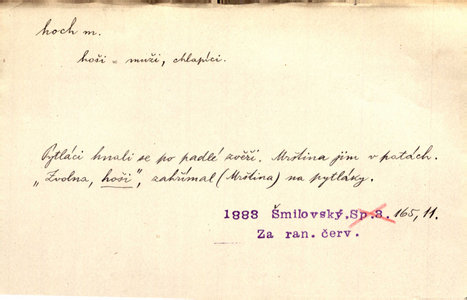 hoch m.
hoši = muži, chlapíci.
Pytláci hnali se po padlé zvěři. Mrština jim v patách.
„Zvolna, hoši", zahřímal (Mrština) na pytláky.
1883 Šmilovský. Sp. 3. 165, 11.
Za ran. červ.